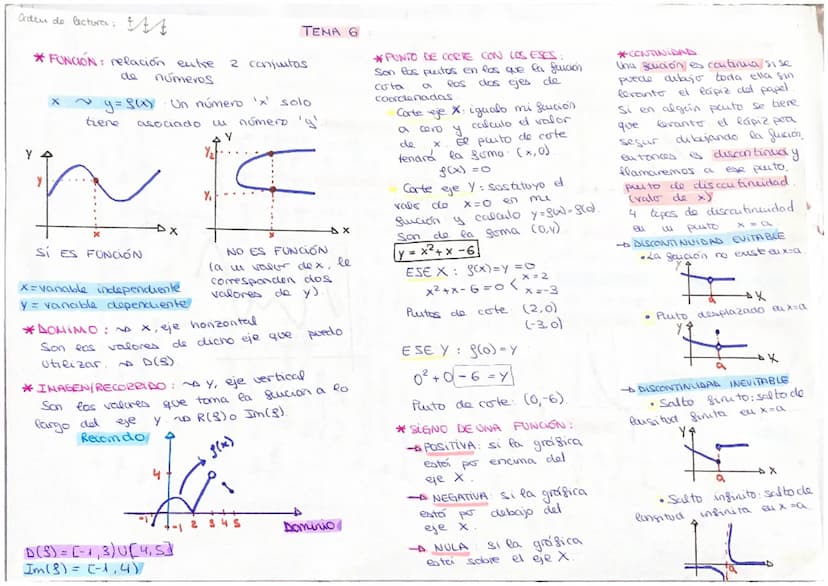 Orden de lectura:
TEMA 6
* FUNCIÓN: relación entre 2 conjuntos
de números
x ~> y=f(x) Un número 'x' solo
tiene asociado un número 'y'
Y
y
x
X
SÍ ES FUNCIÓN
Y
Y₂
Y₁
x
X
NO ES FUNCIÓN
(a un valor de x, le
corresponden dos
valores de y).
x=variable independiente
y = variable dependiente
* DOMINIO: ~> x, eje horizontal
Son los valores de dicho eje que puedo
utilizar. ~> D(f)
* IMAGEN/RECORRIDO: ~> y, eje vertical
Son los valores que toma la función a lo
largo del eje y ~> R(f) o Im(f).
Recorrido
f(x)
4
-1
-1 2 3 4 5
Dominio
D(f) = [-1,3) U [4,5]
Im(f) = [-1,4)
* PUNTO DE CORTE CON LOS EJES:
Son los puntos en los que la función
corta a los dos ejes de
coordenadas
- Corte eje X: igualo mi función
a cero y calculo el valor
de x. El punto de corte
tendrá la forma: (x,0)
f(x)=0
- Corte eje Y: sustituyo el
valor de x=0 en mi
función y calculo y=f(x)=f(0).
Son de la forma (0,y)
y = x²+x-6
EJE X: f(x)=y=0
x²+x-6=0 < x=2
x=-3
Puntos de corte: (2,0)
(-3,0)
EJE Y: f(0)=y
0²+0-6=y
Punto de corte: (0,-6)
* SIGNO DE UNA FUNCIÓN:
→ POSITIVA: si la gráfica
está por encima del
eje X.
→ NEGATIVA: si la gráfica
está por debajo del
eje X.
→ NULA: si la gráfica
está sobre el eje X.
* CONTINUIDAD
Una función es continua si se
puede dibujar toda ella sin
levantar el lápiz del papel.
Si en algún punto se tiene
que levantar el lápiz para
seguir dibujando la función,
entonces es discontinua y
llamaremos a ese punto,
punto de discontinuidad.
(valor de x)
4 tipos de discontinuidad
en un punto x=a
→ DISCONTINUIDAD EVITABLE
• La función no existe en x=a.
Y
a
X
• Punto desplazado en x=a
Y
a
X
→ DISCONTINUIDAD INEVITABLE
• Salto finito: salto de
longitud finita en x=a.
Y
a
X
• Salto infinito: salto de
longitud infinita en x=a.
a